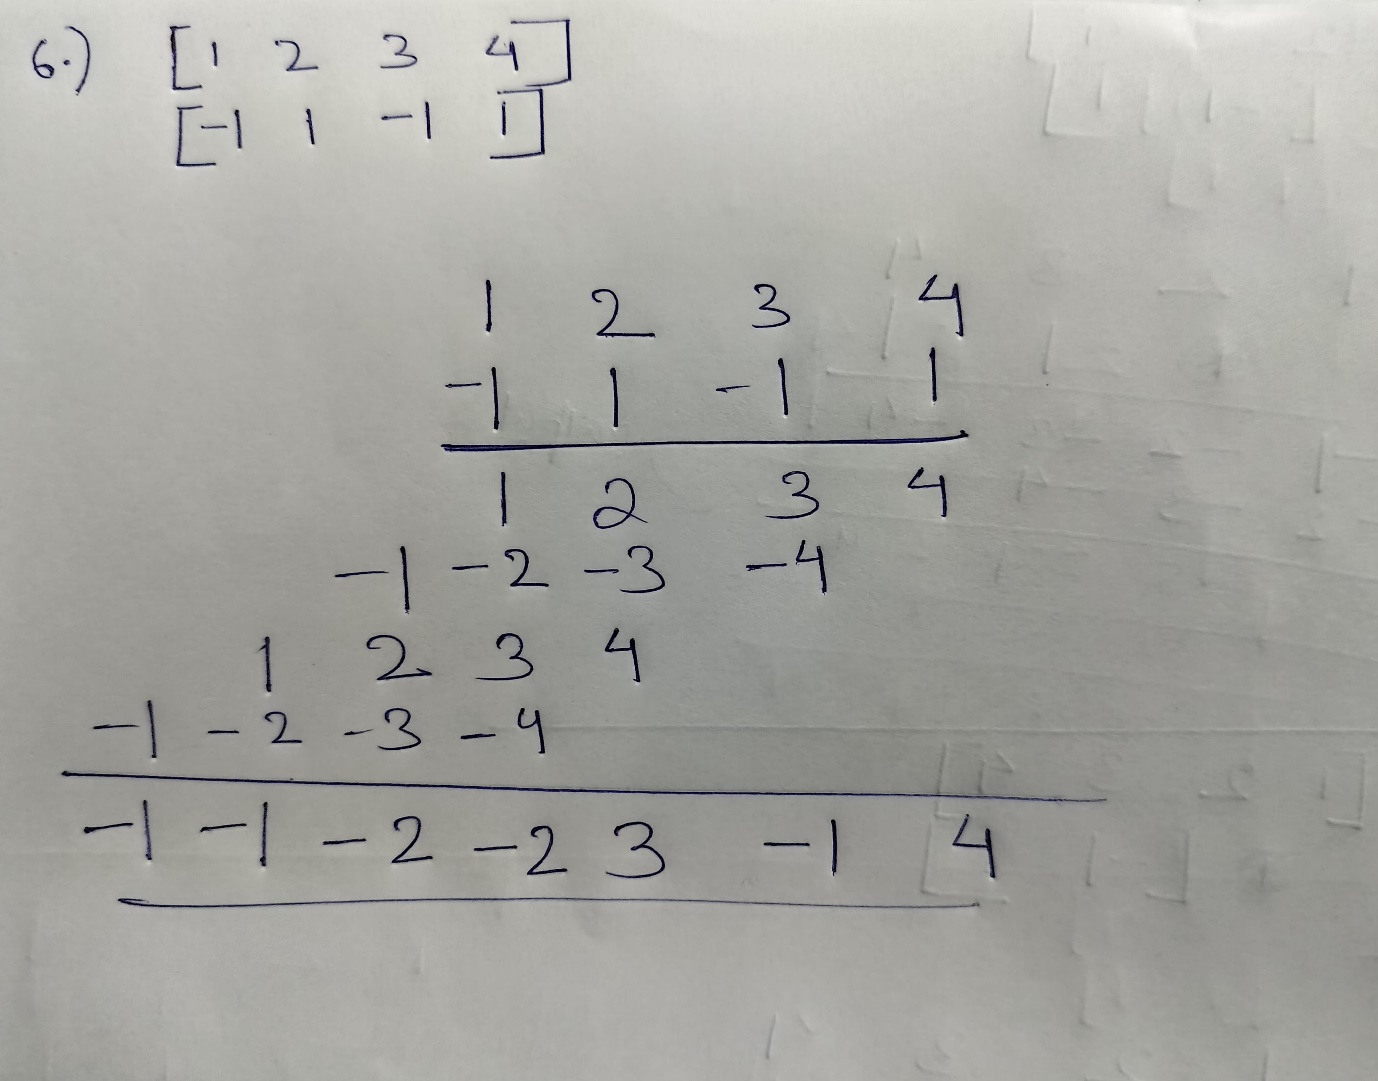 6.) [1 2 3 4]
[-1 1 -1 1]
1 2 3 4
-1 1 -1 1
1 2 3 4
-1 -2 -3 -4
1 2 3 4
-1 -2 -3 -4
-1 -1 -2 -2 3 -1 4